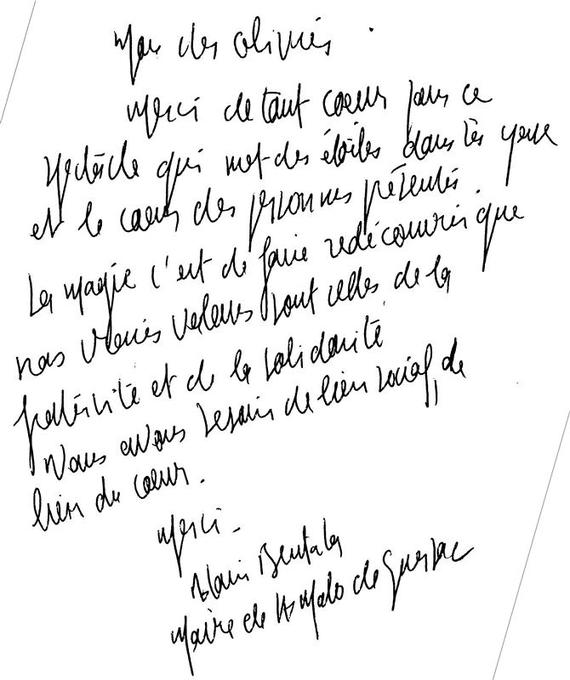 des oliviers.
Merci de tant coeur pour ce
spectacle qui met des étoiles dans les yeux
et le coeur des personnes présentes.
La magie c'est de faire redécouvrir que
nos vraies valeurs sont celles de la
fraternité et de la solidarité
Nous avons besoin de lien social, de
lien du coeur.
Merci -
Alain
Maire de St Malo de Guersac